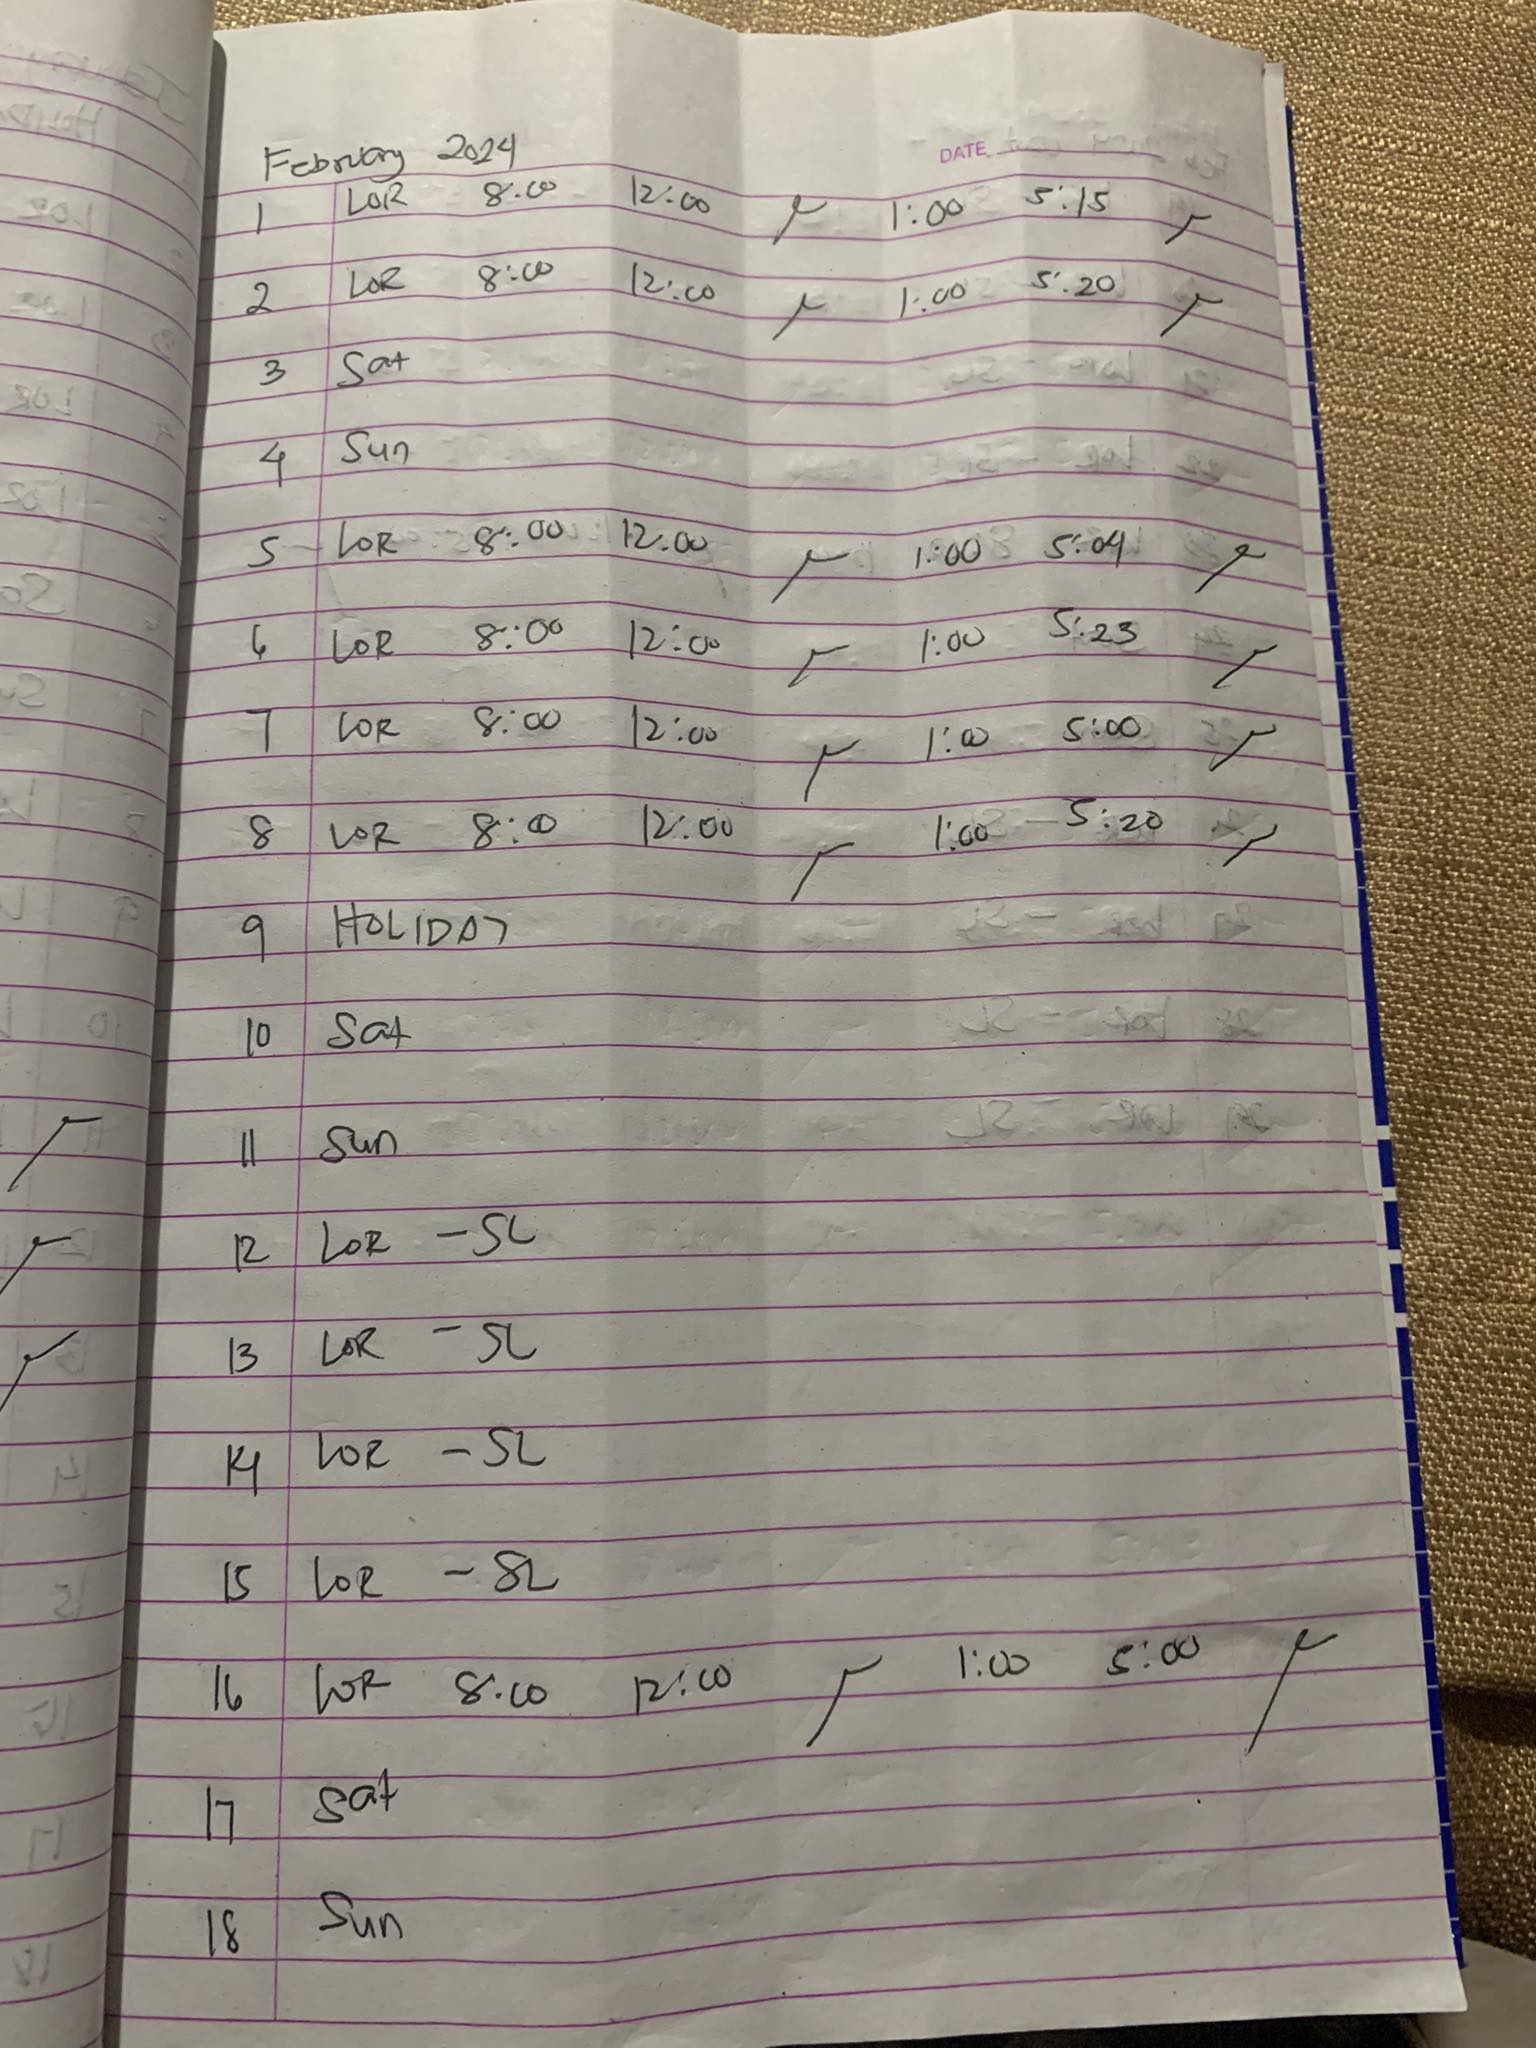 February 2024
DATE
1 LOR 8:00 12:00 1:00 5:15
2 LOR 8:00 12:00 1:00 5:20
3 Sat
4 Sun
5 LOR 8:00 12:00 1:00 5:04
6 LOR 8:00 12:00 1:00 5:23
7 LOR 8:00 12:00 1:00 5:00
8 LOR 8:00 12:00 1:00 5:20
9 HOLIDAY
10 Sat
11 Sun
12 LOR - SL
13 LOR - SL
14 LOR - SL
15 LOR - SL
16 LOR 8:00 12:00 1:00 5:00
17 Sat
18 Sun